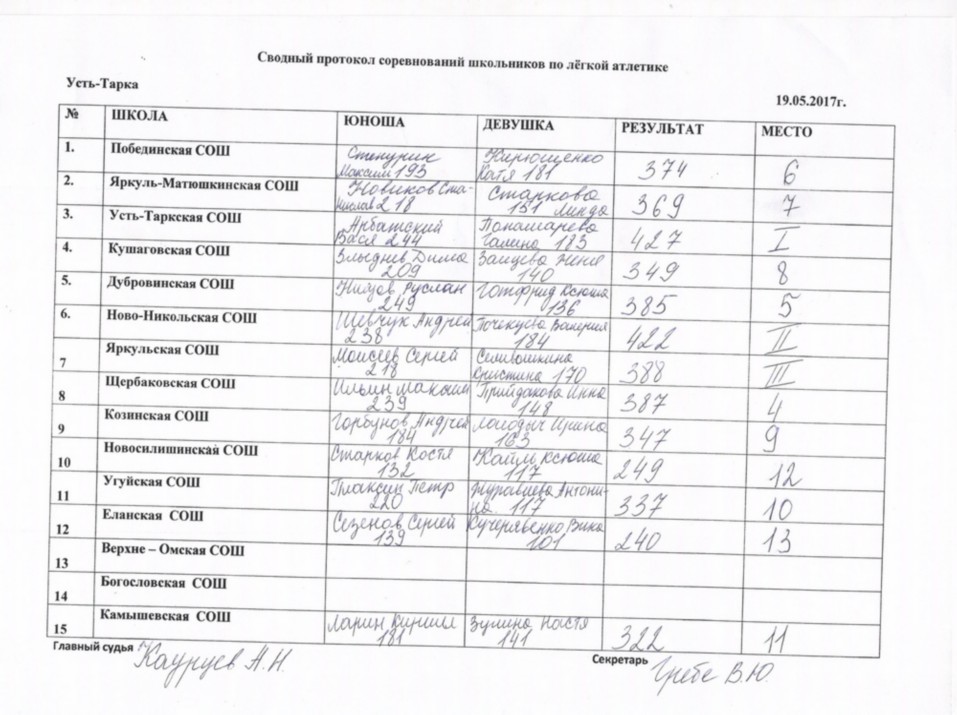 Сводный протокол соревнований школьников по лёгкой атлетике
Усть-Тарка
19.05.2017г.
№ ШКОЛА ЮНОША ДЕВУШКА РЕЗУЛЬТАТ МЕСТО
1. Побединская СОШ Максим 193 Катя 181 374 6
2. Яркуль-Матюшкинская СОШ Новиков Ста-
нислав 218 Старкова
151 Линда 369 7
3. Усть-Таркская СОШ Арбатский
Вася 244 Понамарева
Галина 183 427 I
4. Кушаговская СОШ Злыднев Дима
209 Зайцева Женя
140 349 8
5. Дубровинская СОШ Руслан
249 Готфрид Ксюша
136 385 5
6. Ново-Никольская СОШ Шевчук Андрей
238 Валерия
184 422 II
7 Яркульская СОШ Моисеев Сергей
218 Селивошкина
Кристина 170 388 III
8 Щербаковская СОШ Ильин Максим
239 Инна
148 387 4
9 Козинская СОШ Горбунов Андрей
184 Ирина
163 347 9
10 Новосилишинская СОШ Старков Костя
132 Кайль Ксюша
117 249 12
11 Угуйская СОШ Плаксин Петр
220 Журавлева Антони-
на. 117 337 10
12 Еланская СОШ Сезенов Сергей
139 Кучеравенко Вика
101 240 13
13 Верхне – Омская СОШ
14 Богословская СОШ
15 Камышевская СОШ Ларин Кирилл
181 Зулина Настя
141 322 11
Главный судья А.Н.
Секретарь Гребе В.Ю.